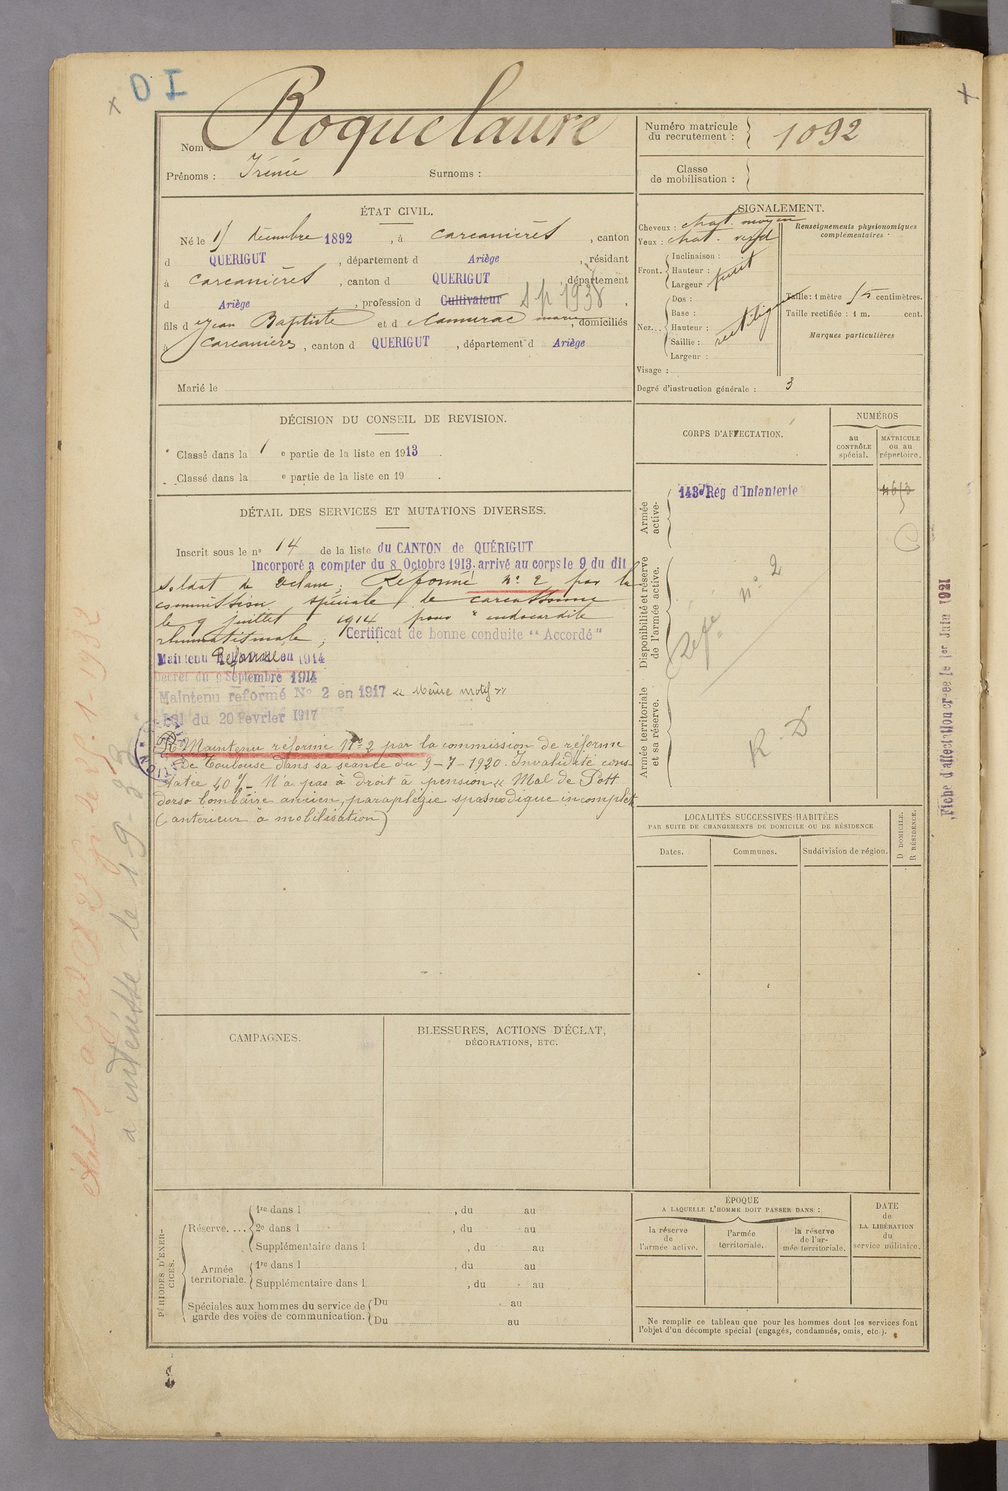 DI
Nom : Roquelaure
Prénoms : Irénée Surnoms :
Numéro matricule du recrutement : 1092
Classe de mobilisation :
ÉTAT CIVIL.
Né le décembre 1892, à Carcanières, canton
d QUERIGUT, département d Ariège, résidant
à Carcanières, canton d QUERIGUT, département
d Ariège, profession d Cultivateur S p 1938,
fils d Jean Baptiste et d Camurac marie, domiciliés
à Carcanières, canton d QUERIGUT, département d Ariège
Marié le
SIGNALEMENT.
Cheveux : chat. moyen
Yeux : chat. verd
Front.
Inclinaison :
Hauteur : petit
Largeur
Nez...
Dos :
Base :
Hauteur : rectiligne
Saillie :
Largeur :
Visage :
Degré d'instruction générale : 3
Renseignements physionomiques complémentaires :
Taille : 1 mètre centimètres.
Taille rectifiée : 1 m. cent.
Marques particulières
DÉCISION DU CONSEIL DE REVISION.
Classé dans la 1 e partie de la liste en 1913.
Classé dans la e partie de la liste en 19 .
DÉTAIL DES SERVICES ET MUTATIONS DIVERSES.
Inscrit sous le n° 14 de la liste du CANTON de QUÉRIGUT
Incorporé à compter du 8 Octobre 1913. arrivé au corps le 9 du dit
Soldat de 2e classe. Réformé n° 2 par la
commission spéciale de Carcassonne
le 9 juillet 1914 pour "endocardite
rhumatismale". Certificat de bonne conduite "Accordé"
Maintenu Réformé en 1914
Décret du 9 Septembre 1914
Maintenu réformé N° 2 en 1917 « Même motif »
Loi du 20 Février 1917
Maintenu réformé N° 2 par la commission de réforme
de Toulouse dans sa séance du 9-7-1920. Invalidité cons-
tatée 40 %. N'a pas à droit à pension « Mal de Pott
dorso lombaire ancien, paraplégie spasmodique incomplète
(antérieur à mobilisation)
CORPS D'AFFECTATION.
NUMÉROS
au CONTRÔLE spécial.
MATRICULE ou au répertoire.
Armée active.
143e Rég d'Infanterie
Disponibilité et réserve de l'armée active.
Réfé n° 2
Armée territoriale et sa réserve.
R. D
"Fiche d'affectation créée le 1er Juin 1921
LOCALITÉS SUCCESSIVES HABITÉES
PAR SUITE DE CHANGEMENTS DE DOMICILE OU DE RÉSIDENCE
Dates.
Communes.
Subdivision de région.
D DOMICILE.
R RÉSIDENCE.
CAMPAGNES.
BLESSURES, ACTIONS D'ÉCLAT,
DÉCORATIONS, ETC.
PÉRIODES D'EXERCICES.
Réserve....
1re dans l , du au
2e dans l , du au
Supplémentaire dans l , du au
Armée territoriale.
1re dans l , du au
Supplémentaire dans l , du au
Spéciales aux hommes du service de garde des voies de communication.
Du au
Du au
ÉPOQUE
A LAQUELLE L'HOMME DOIT PASSER DANS :
la réserve de l'armée active.
l'armée territoriale.
la réserve de l'armée territoriale.
DATE de LA LIBÉRATION du service militaire.
Ne remplir ce tableau que pour les hommes dont les services font
l'objet d'un décompte spécial (engagés, condamnés, omis, etc.).